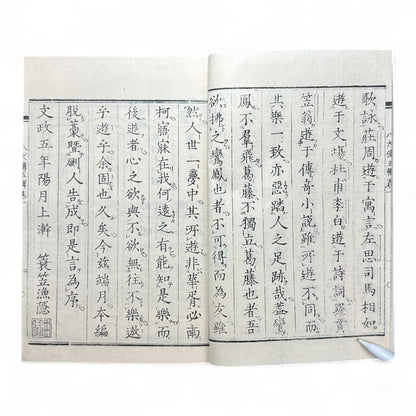 歌詠莊周遊于寓言左思司馬相如
遊于文場杜甫李白遊于詩詞羅貫
笠翁遊于傳奇小說雖所遊不同而
其樂一致亦惡踏人之足跡哉蓋鸞
鳳不羣飛葛藤不獨立葛藤也者吾
欲拂之鸞鳳也者不可得而為友雖
然人世一夢中其所遊非華胥必南
柯寤寐在我何遠之有能知是樂而
後遊者心之欲與不欲無往不樂遨
乎遊乎余固也久矣今茲端月本編
脫藁曁刪人告成即是言為序
文政五年陽月上澣 簑笠漁隱